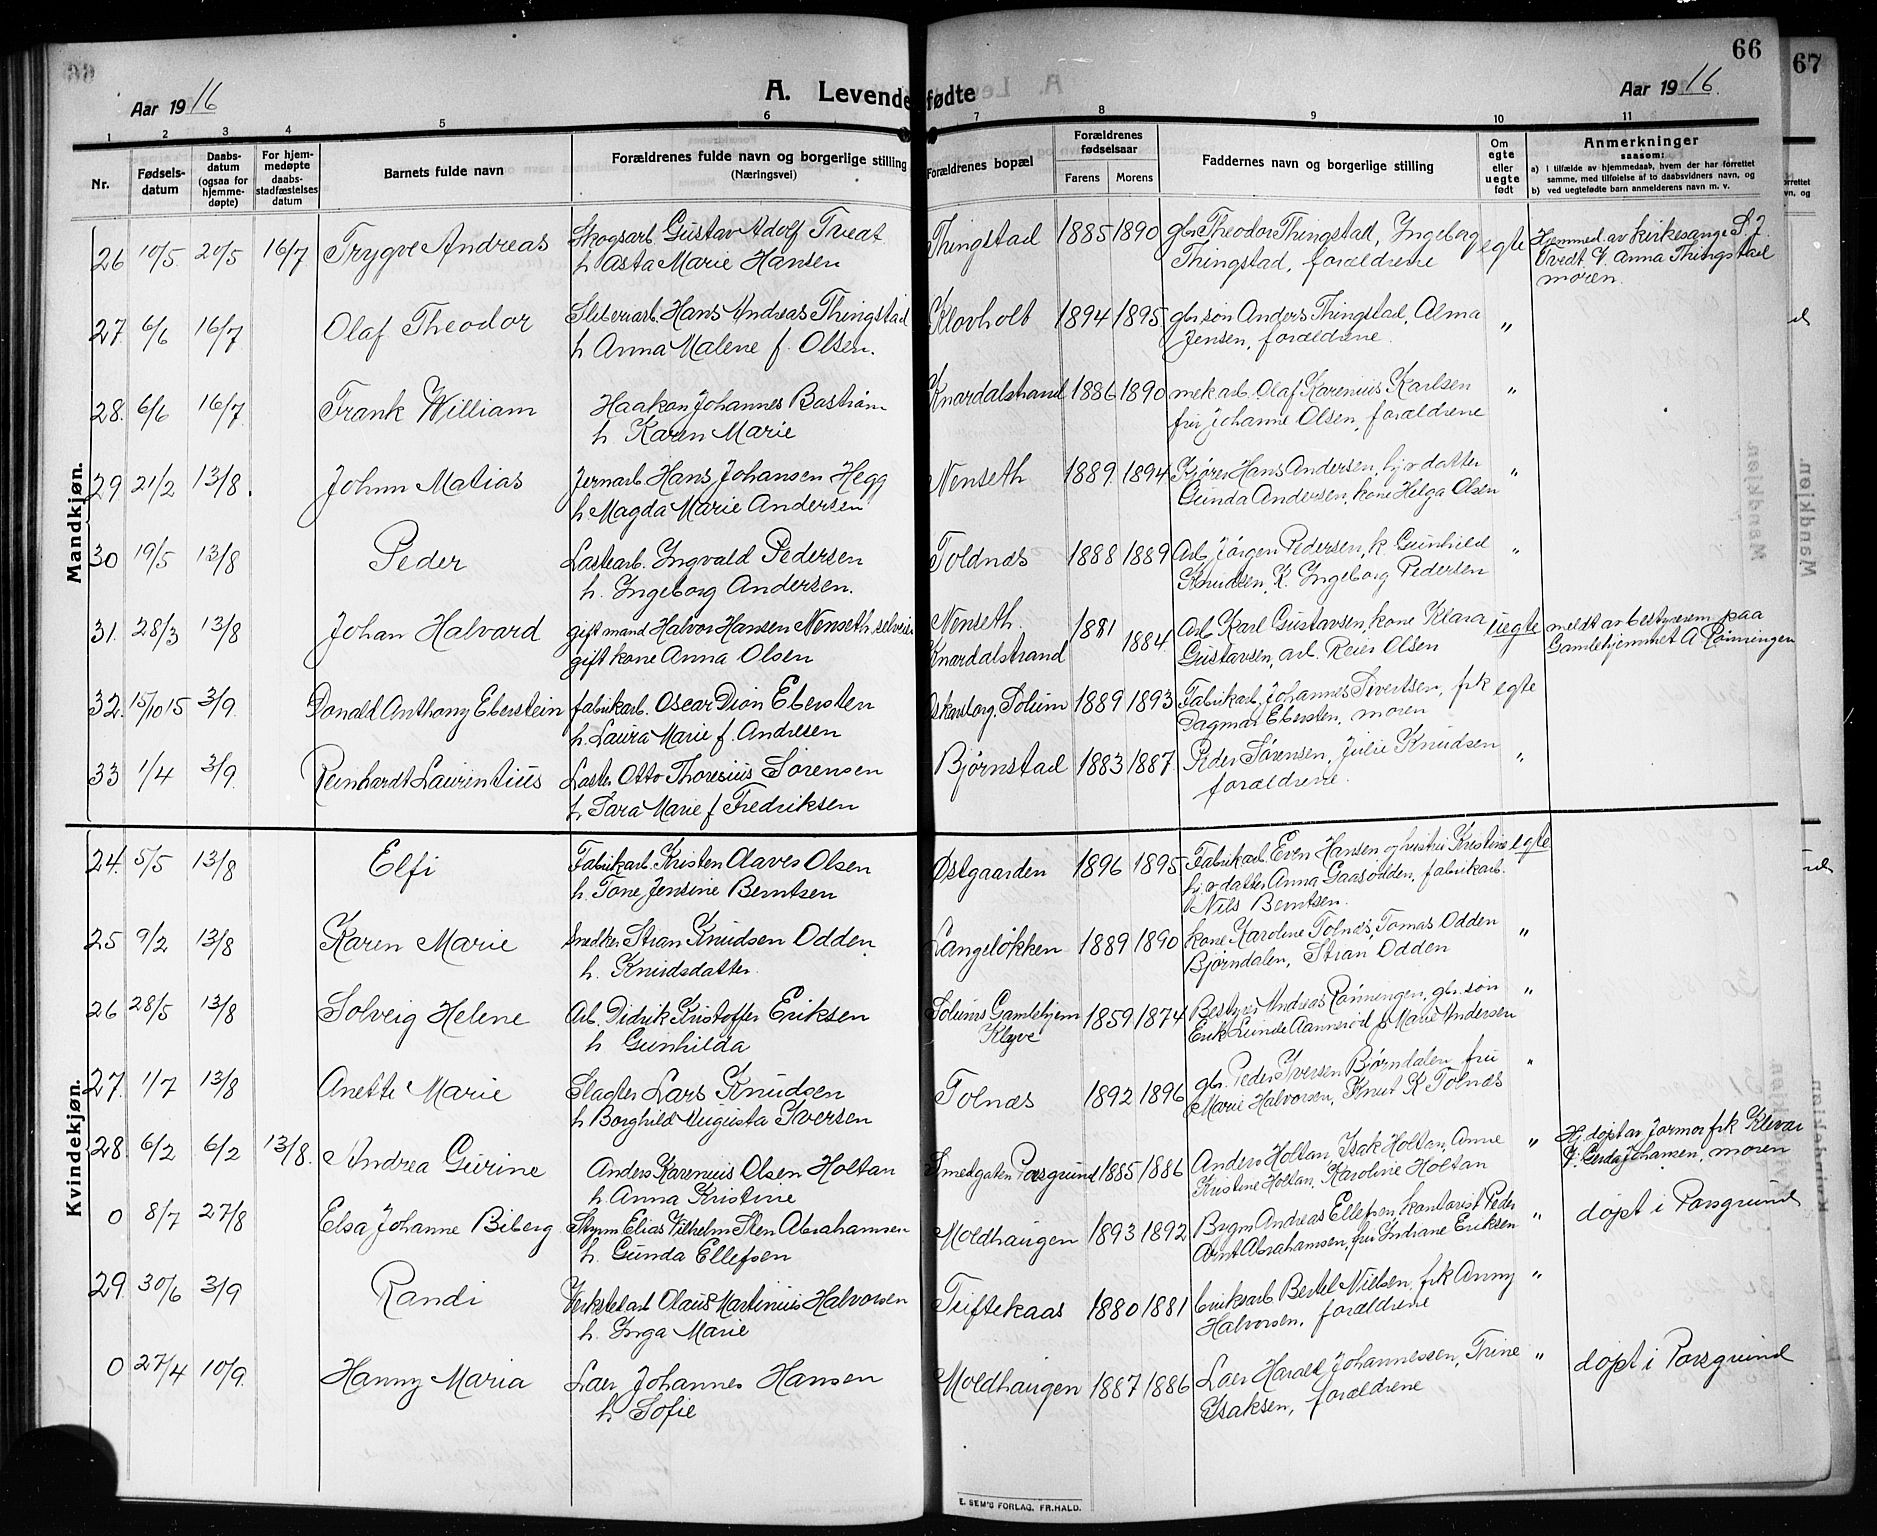 66
67
Aar 1916
A. Levendefødte
Aar 1916.
1 2 3 4 5 6 7 8 9 10 11
Nr.
Fødselsdatum
Daabsdatum (ogsaa for hjemmedøpte)
For hjemmedøpte daabsstadfæstelses datum
Barnets fulde navn
Forældrenes fulde navn og borgerlige stilling
(Næringsvei)
Forældrenes bopæl
Forældrenes fødselsaar
Farens Morens
Faddernes navn og borgerlige stilling
Om egte eller uegte født
Anmerkninger
saasom:
a) i tilfælde av hjemmedaab, hvem der har forrettet
samme, med tilføielse af to daabsvidners navn, og
b) ved uegtefødte barn anmelderens navn m. v.
Mandkjøn.
26 10/5. 20/5 16/7 Trygve Andreas Skogsarb. Gustav Adolf Tveat Thingstad 1885 1890 gbr Theodor Thingstad, Ingeborg egte Hjemmed. av kirkesanger S. J.
h. Asta Marie Hansen Thingstad, forældrene Tvedt V. Anna Thingstad
moren.
27. 6/6 16/7 Olaf Theodor Sliberiarb. Hans Andreas Thingstad Klovholt 1894 1895 gbr.søn Anders Thingstad, Alma "
h Anna Malene f. Olsen. Jensen, forældrene.
28. 6/6 16/7 Frank William Haakon Johannes Bastrøm Knardalstrand 1886 1890 mek arb. Olaf Karenius Karlsen "
h. Karen Marie fru Johanne Olsen, forældrene
29 21/2 13/8. Johnn Matias Jernarb. Hans Johansen Hegg Nenseth 1889 1894 Kjører Hans Andersen, hj v datter "
h. Magda Marie Andersen Gunda Andersen, kone Helga Olsen
30 19/5 13/8 Peder Lastearb. Ingvald Pedersen Toldnæs 1888 1889 Arb. Jørgen Pedersen, k Gunhild "
h. Ingeborg Andersen. Knudsen, K. Ingeborg Pedersen
31. 28/3 13/8 Johan Halvard gift mand Halvor Hansen Nenseth, selveier Nenseth. 1881 Arb. Karl Gustavsen, kone Klara uegte meldt av bestyreren paa
gift kone Anna Olsen Knardalstrand 1884 Gustavsen, arb. Reier Olsen Gamlehjemmet A Rønningen
32. 15/10 15 3/9. Donald Anthony Eberstein fabrikarb. Oscar Dion Ebersten Oskarsborg, Solum 1889 1893 Fabrikarb Johannes Sivertsen, frk egte
h. Laura Marie f. Andresen Dagmar Ebersten, moren
33 1/4 3/9. Reinhardt Laurentius Laster Otto Thoresius Sørensen Bjørnstad 1883 1887. Peder Sørensen, Julie Knudsen "
h Sara Marie f Fredriksen forældrene.
Kvindekjøn.
24. 5/5 13/8 Elfi Fabrikarb. Kristen Aaves Olsen Østgaarden 1896 1895 Fabrikarb. Even Hansen og hustru Kristine egte
h. Tone Jensine Berntsen hj. v datter Anna Gaasodden, fabrikarb.
Nils Berntsen.
25 9/2 13/8 Karen Marie Snedker Stran Knudsen Odden. Langeløkken 1889 1890 kone Karoline Tolnæs, Tomas Odden "
h. Knudsdatter. Bjørndalen, Stran Odden
26 28/5 13/8 Solveig Helene Arb. Didrik Kristoffer Eriksen Solums Gamlehjem 1859 1874 Bestyrer Andreas Rønningen, gbr. søn "
h Gunhilda Klyve Erik Lunde Aannerød, f Marie Andersen
27. 1/7 13/8 Anette Marie Slagter Lars Knudsen Tolnæs 1892 1896 gbr. Peder Iversen Bjørndalen, fru "
h Borghild Augusta Iversen Marie Halvorsen, Knut K Tolnæs
28. 6/2 6/2 13/8. Andrea Gurine Anders Karenius Olsen Holtan Smedgaten Porsgrund 1885 1886 Anders Holtan, Isak Holtan, Anne " Hj. døpt av Jormor frk Klevar
h. Anna Kristine Kristine Holtan, Karoline Holtan V. Gerda Johansen, moren
0 8/7 27/8 Elsa Johanne Biberg Styrm Elias Vilhelm Sten Abrahamsen Moldhaugen 1893 1892 Bygm Andreas Ellefsen, kontorist Peder " døpt i Porsgrund
h. Gunda Ellefsen Arnt Abrahamsen, fru Indiane Eriksen
29. 30/6 3/9 Randi Verkstedarb Olaus Martinius Halvorsen Tuftekaas 1880 1881 bruksarb Bertel Nielsen, frk Anny "
h. Inga Marie Halvorsen, forældrene
0 27/4 10/9. Hanny Maria Laer Johannes Hansen Moldhaugen 1887 1886 Laer Harald Johannessen, Trine " døpt i Porsgrund
h Sofie Isaksen, forældrene
E. SEM'S FORLAG, FR.HALD.